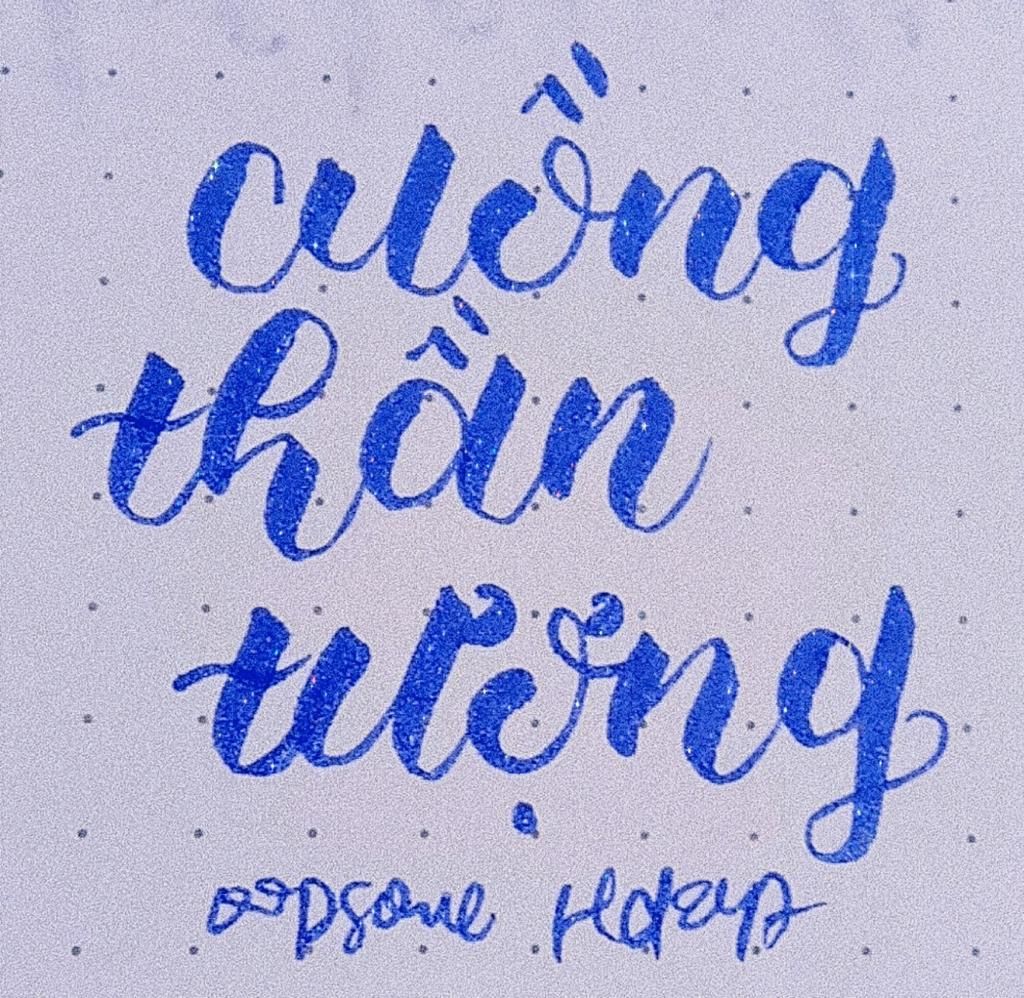 cuồng
thần
tượng